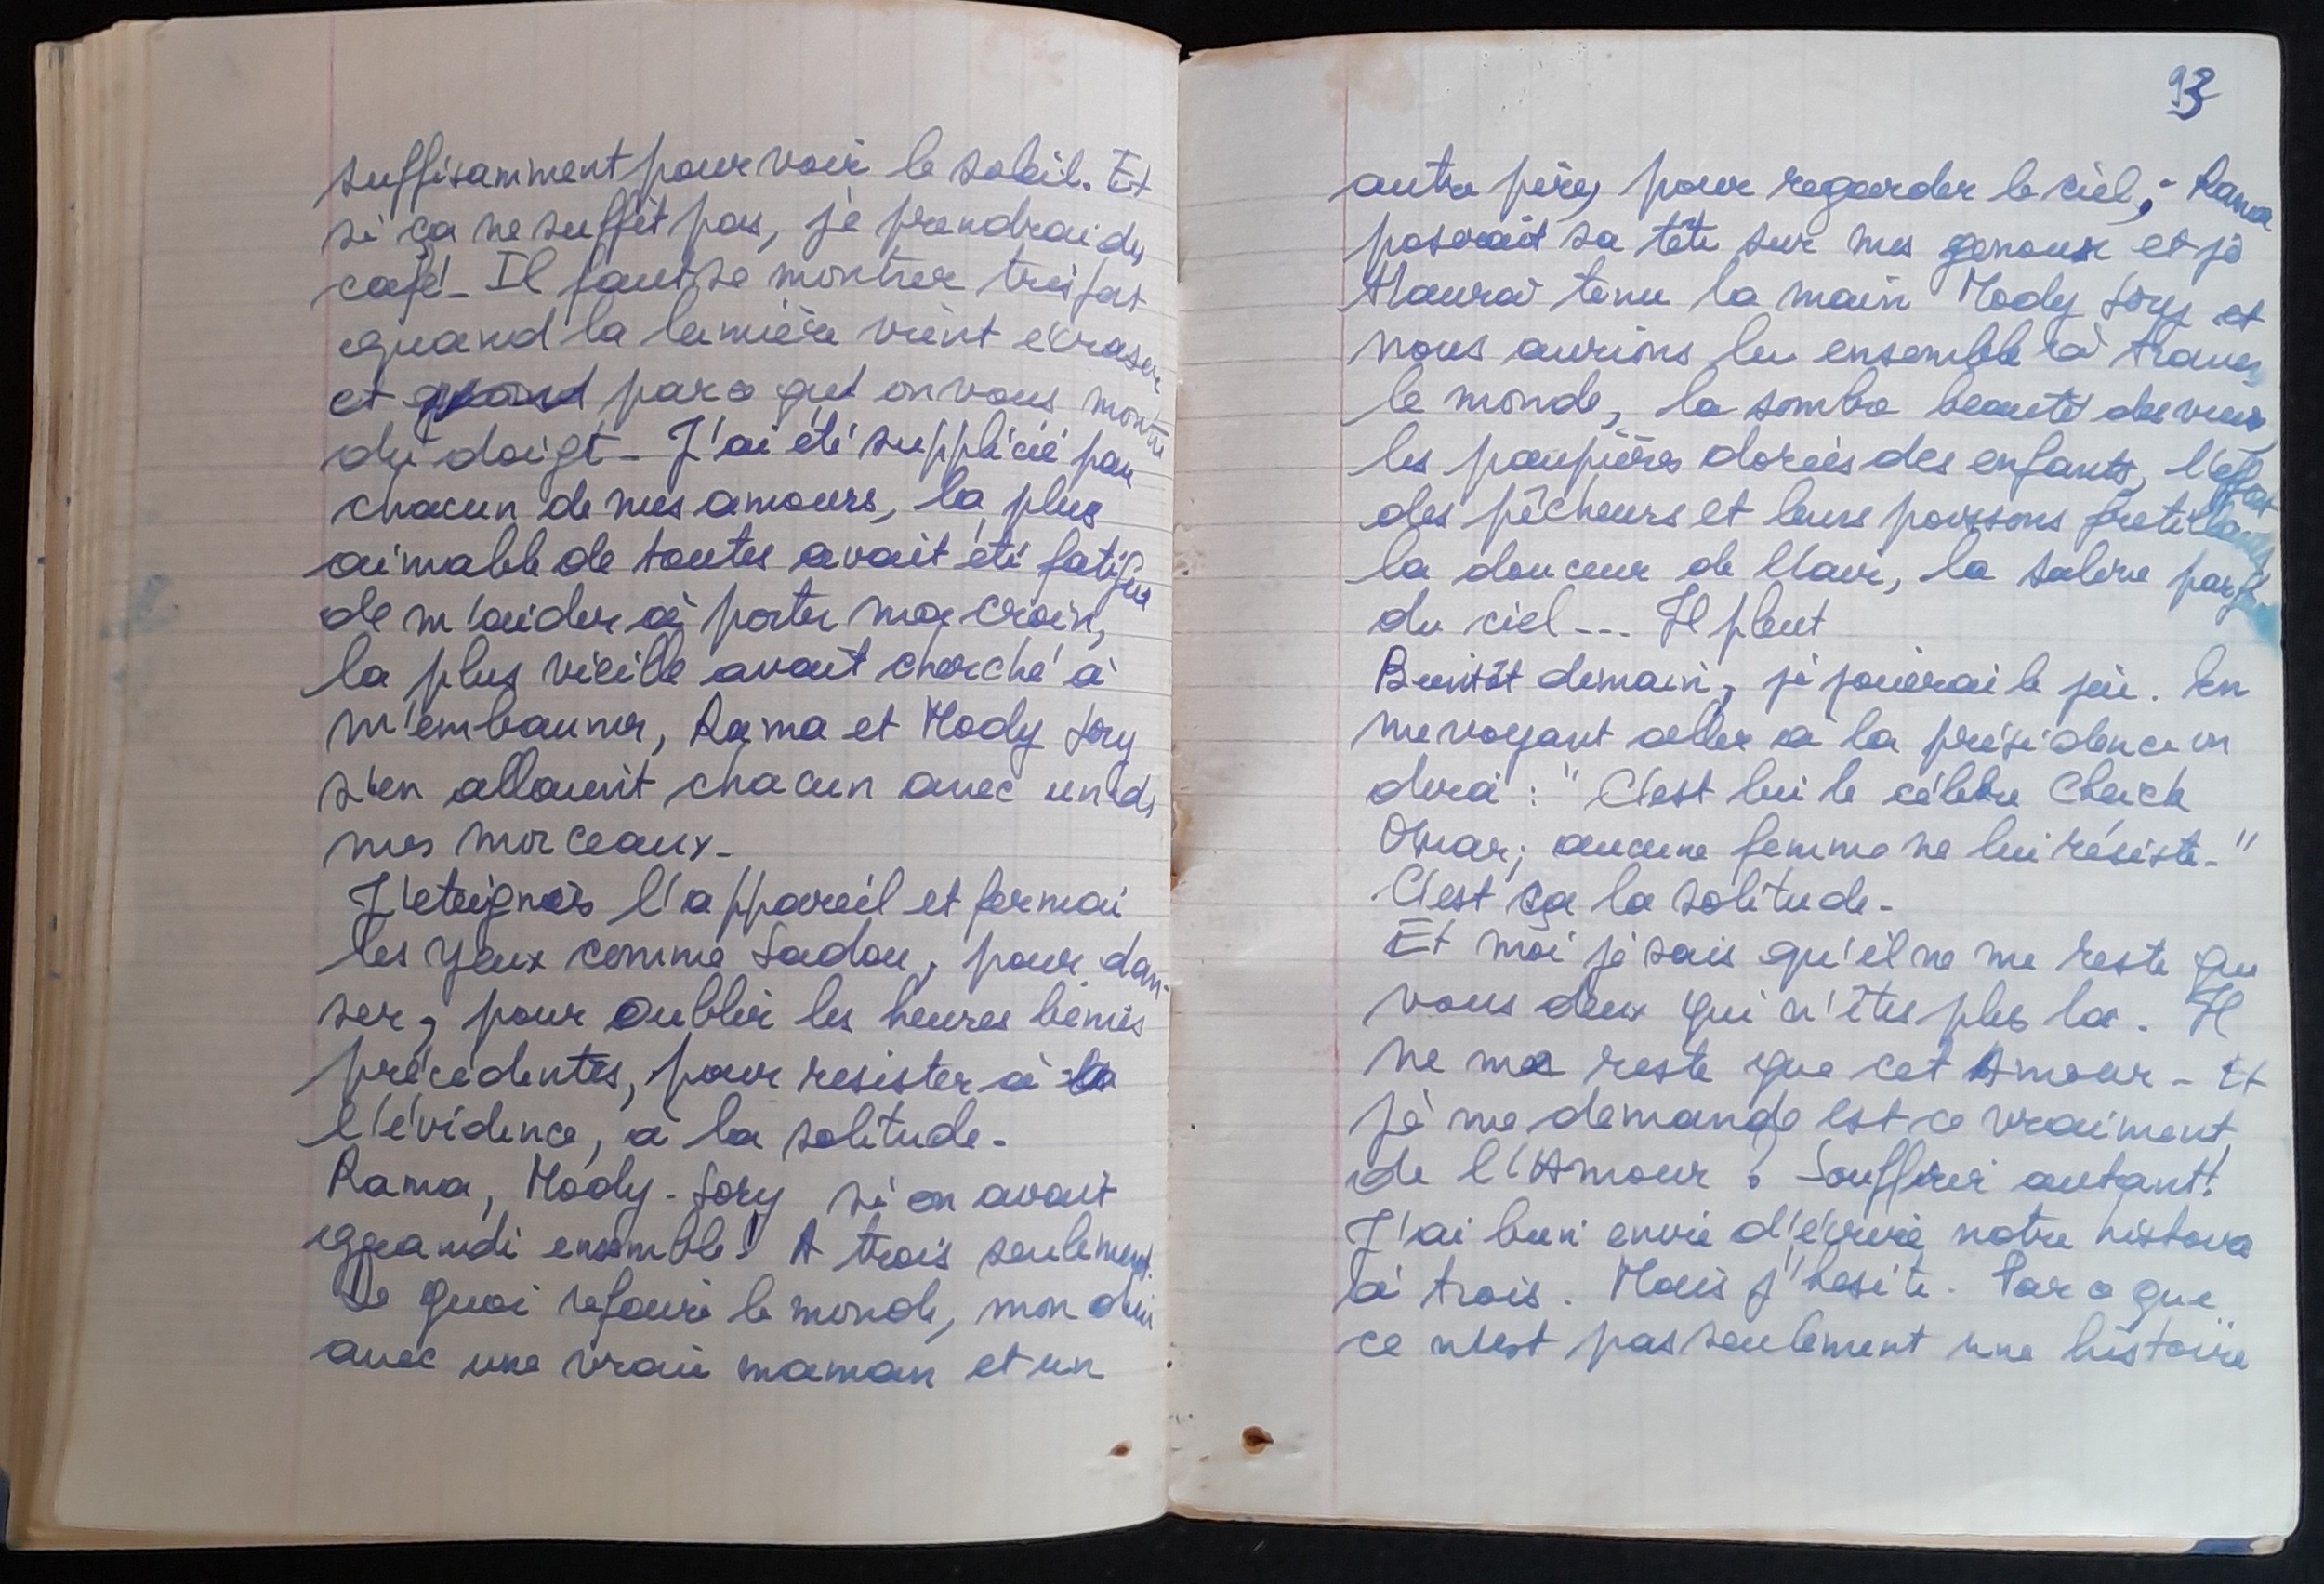 suffisamment pour voir le soleil. Et
si ça ne suffit pas, je prendrai du
café - Il faut se montrer très fort
quand la lumière vient écraser
et parce qu'on vous montre
du doigt - J'ai été supplicié par
chacun de mes amours, la plus
aimable de toutes avait été fatiguée
de m'aider à porter ma croix,
la plus vieille avait cherché à
m'embaumer, Rama et Mody Sory
s'en allaient chacun avec un de
mes morceaux -
J'éteignis l'appareil et fermai
les yeux comme Sadou, pour dan-
ser, pour oublier les heures bénies
précédentes, pour resister à
l'évidence, à la solitude -
Rama, Mody - Sory si on avait
grandi ensemble! A trois seulement.
De quoi refaire le monde, mon dieu
avec une vraie maman et un
93
autre père, pour regarder le ciel, - Rama
poserait sa tête sur mes genoux et je
t'aurai tenu la main Mody Sory et
nous aurions lu ensemble à travers
le monde, la sombre beauté
les paupières dorées des enfants, l'effort
des pêcheurs et leurs poissons fretillants
la douceur de l'air, la
du ciel --- Il pleut
Bientôt demain, je jouerai le jeu. En
me voyant aller à la présidence on
dira : "C'est lui le célèbre Cheick
Omar; aucune femme ne lui résiste -"
C'est ça la solitude -
Et moi je sais qu'il ne me reste que
vous deux qui n'êtes plus là. Il
ne me reste que cet Amour - Et
je me demande est ce vraiment
de l'Amour ? Souffrir autant!
J'ai bien envie d'écrire notre histoire
à trois. Mais j'hesite. Parce que
ce n'est pas seulement une histoire